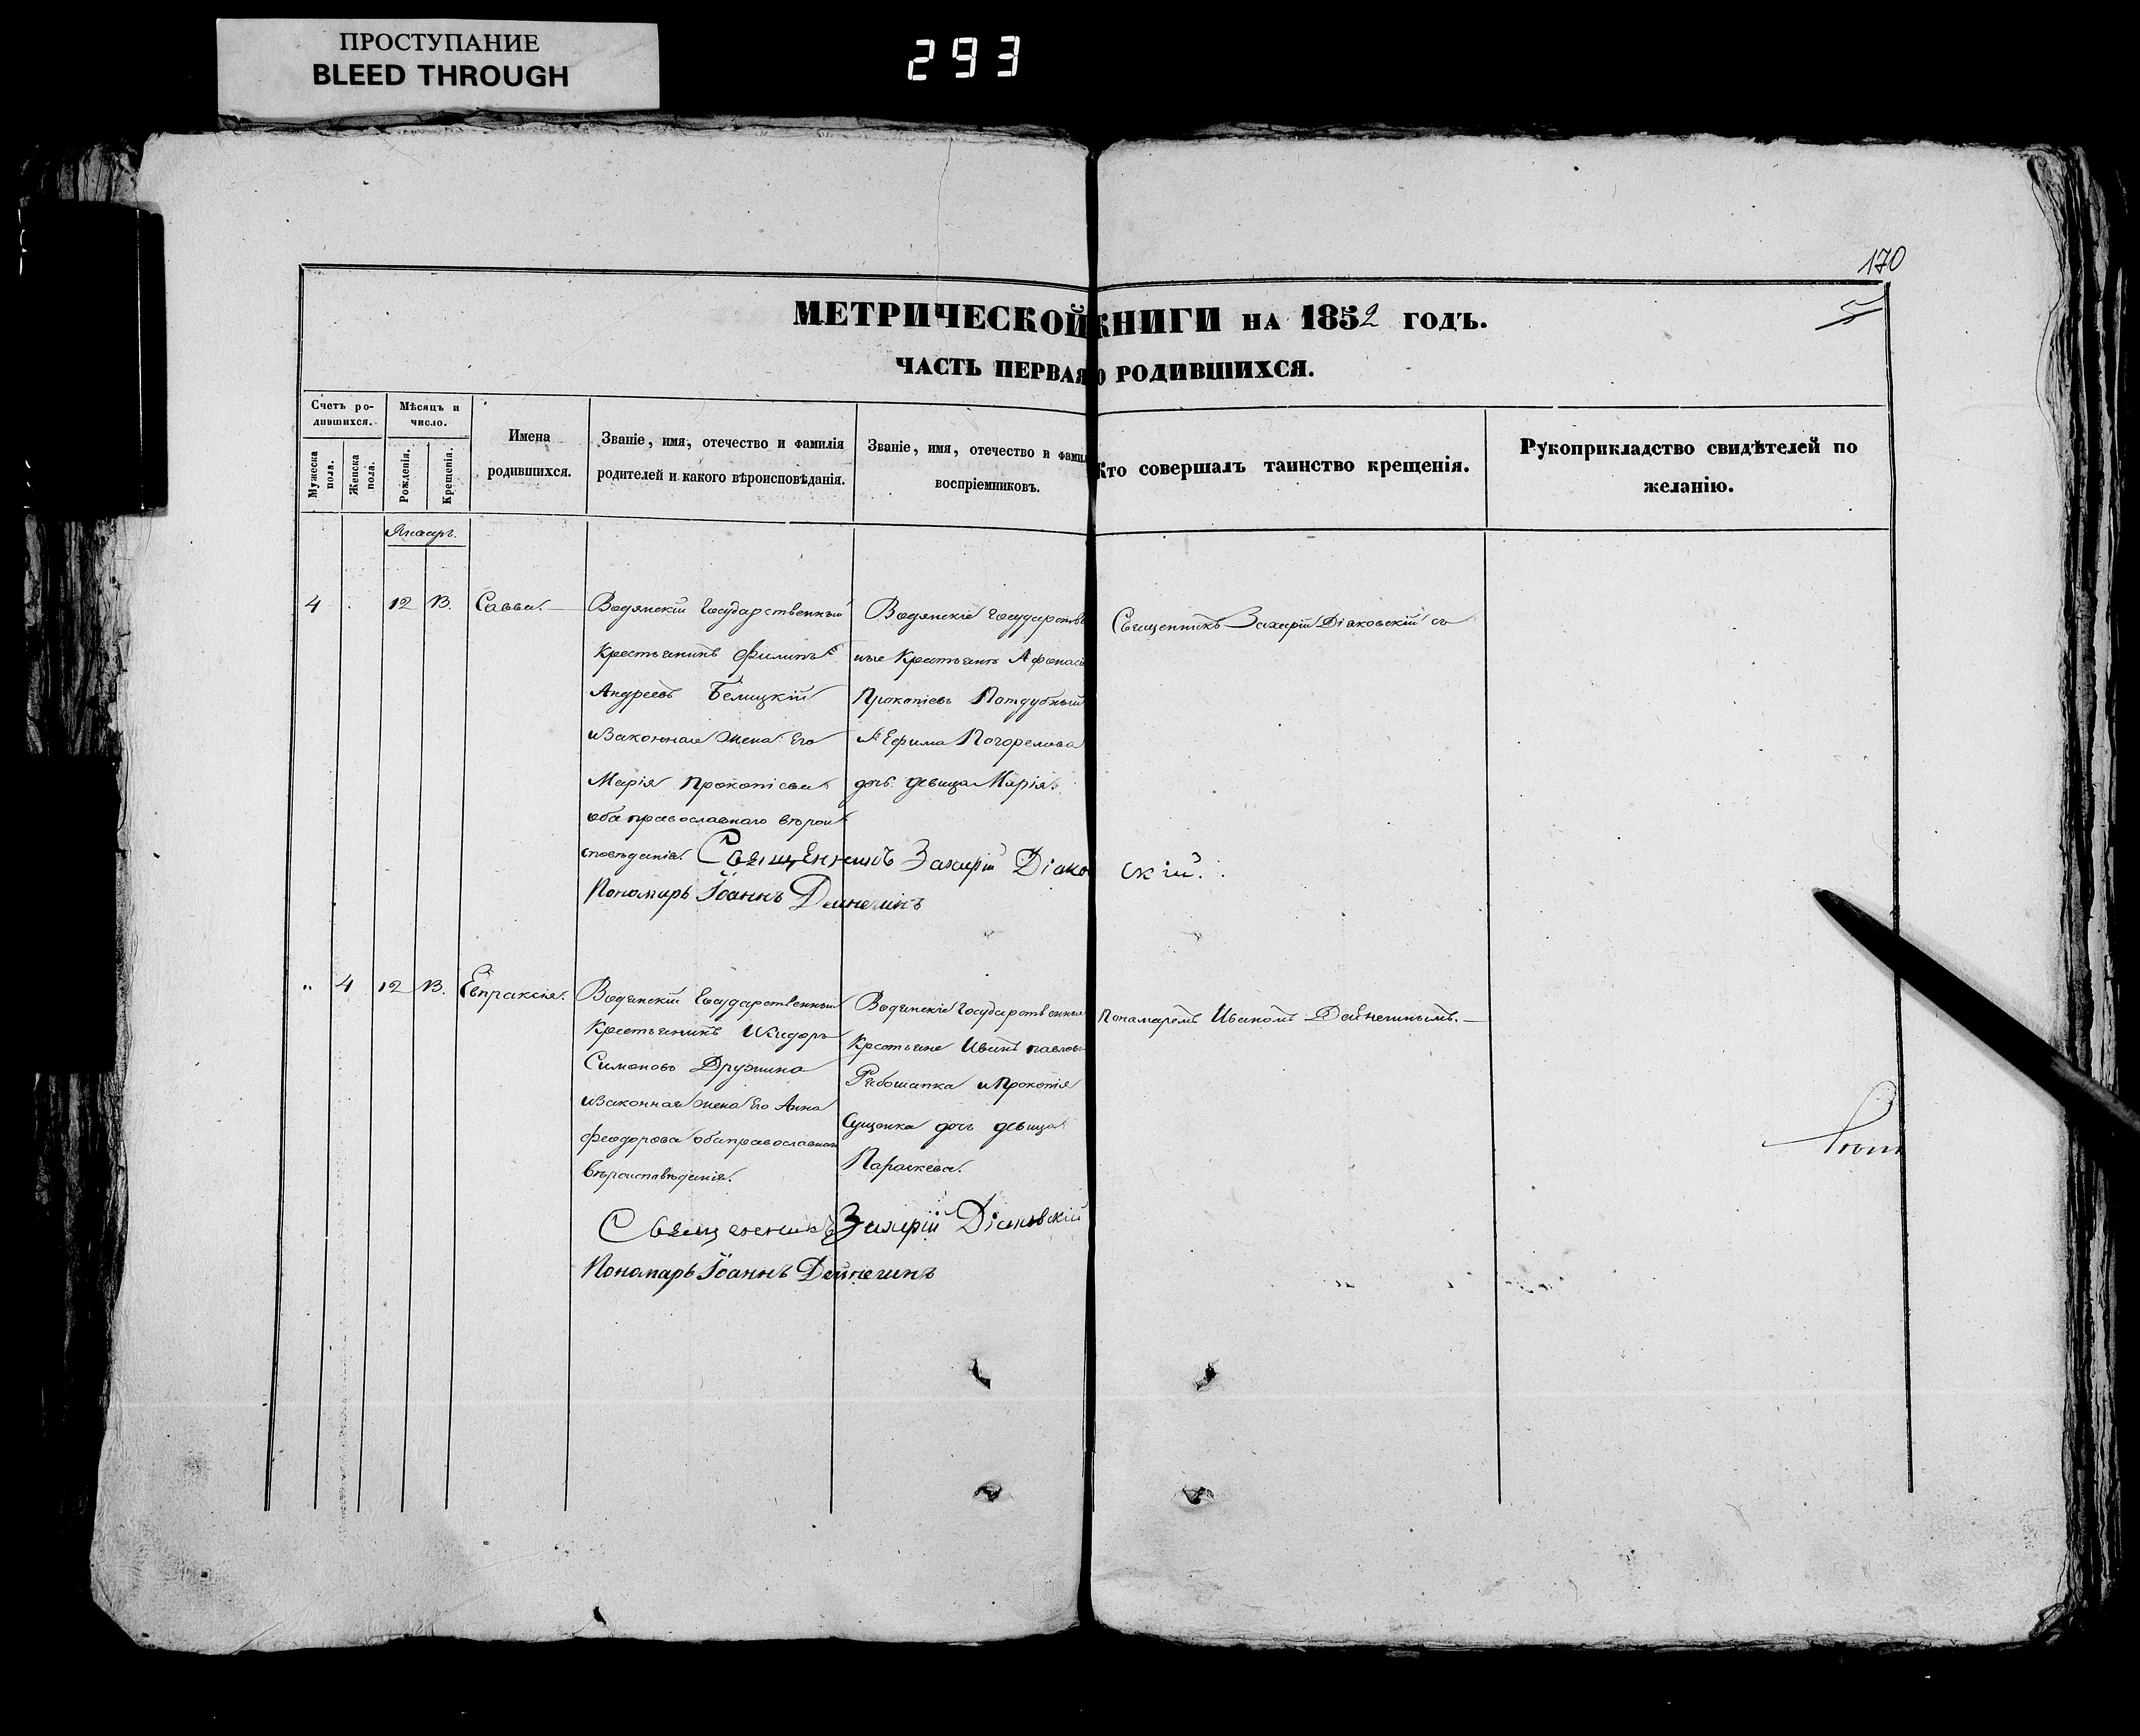 ПРОСТУПАНИЕ
BLEED THROUGH
293
170
МЕТРИЧЕСКОЙ КНИГИ НА 1852 ГОДЪ.
5
ЧАСТЬ ПЕРВАЯ О РОДИВШИХСЯ.
Счетъ ро-
дившихся.
Мужеска
пола.
Женска
пола.
Мѣсяцъ и
число.
Рожденія.
Крещенія.
Имена
родившихся.
Званіе, имя, отечество и фамилія
родителей и какого вѣроисповѣданія.
Званіе, имя, отечество и фамил
воспріемниковъ.
Кто совершалъ таинство крещенія.
Рукоприкладство свидѣтелей по
желанію.
Январь.
4
12
13.
Савва.
Водянскій Государственный
Крестьянинъ Филипъ
Андреевъ Белицкій
и Законная Жена Его
Марія Прокопіева
оба православнаго вѣрои
сповѣданія.
Водянскіе Государств
ные Крестьяне Афонасій
Прокопіевъ Потдубный
и Ефима Погорелова
дочь девица Марія.
Священникъ Захарій Діаковскій съ
Священникъ Захарій Діако скій.
Пономарь Іоаннъ Дейнегинъ
" 4
12
13.
Евпраксія.
Водянскій Государственный
Крестьянинъ Исидоръ
Симоновъ Дружина
и Законная жена Его Анна
Феодорова оба православнаго
вѣроисповѣданія.
Водянскіе Государственные
Крестьяне Иванъ павловъ
Рябошапка и Прокопія
Сущенка дочь девица
Параскева.
Пономаремъ Иваномъ Дейнегинымъ.
Священникъ Захарій Діаковскій
Пономарь Іоаннъ Дейнегинъ